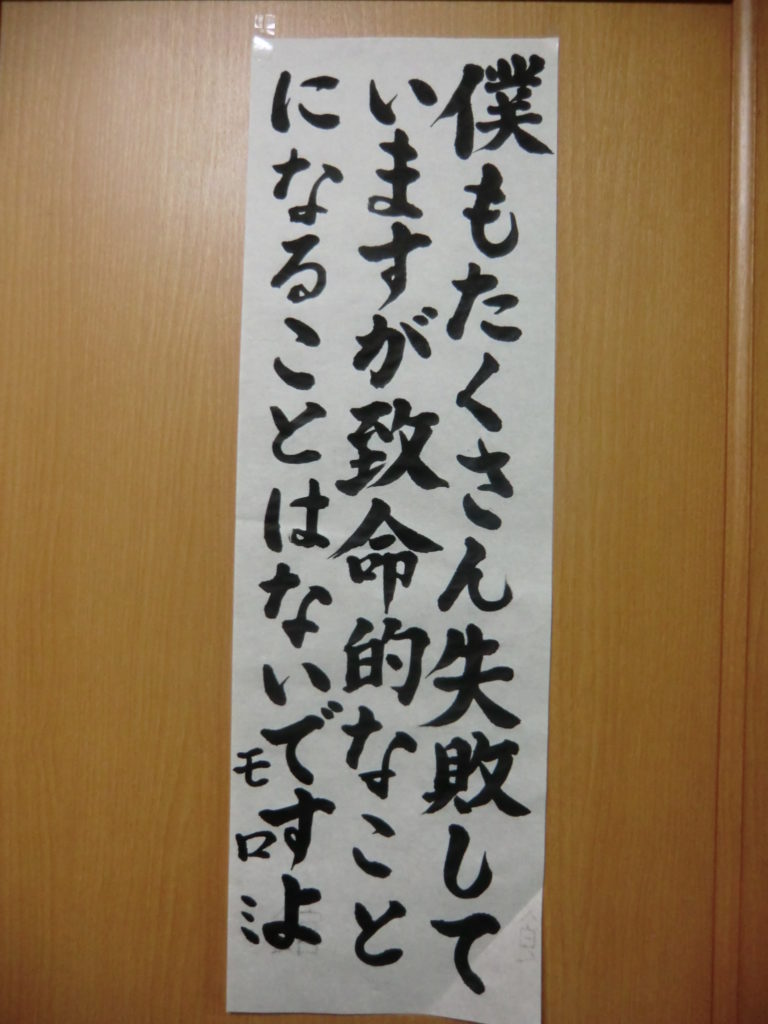 僕もたくさん失敗して
いますが致命的なこと
になることはないですよ
モロミ